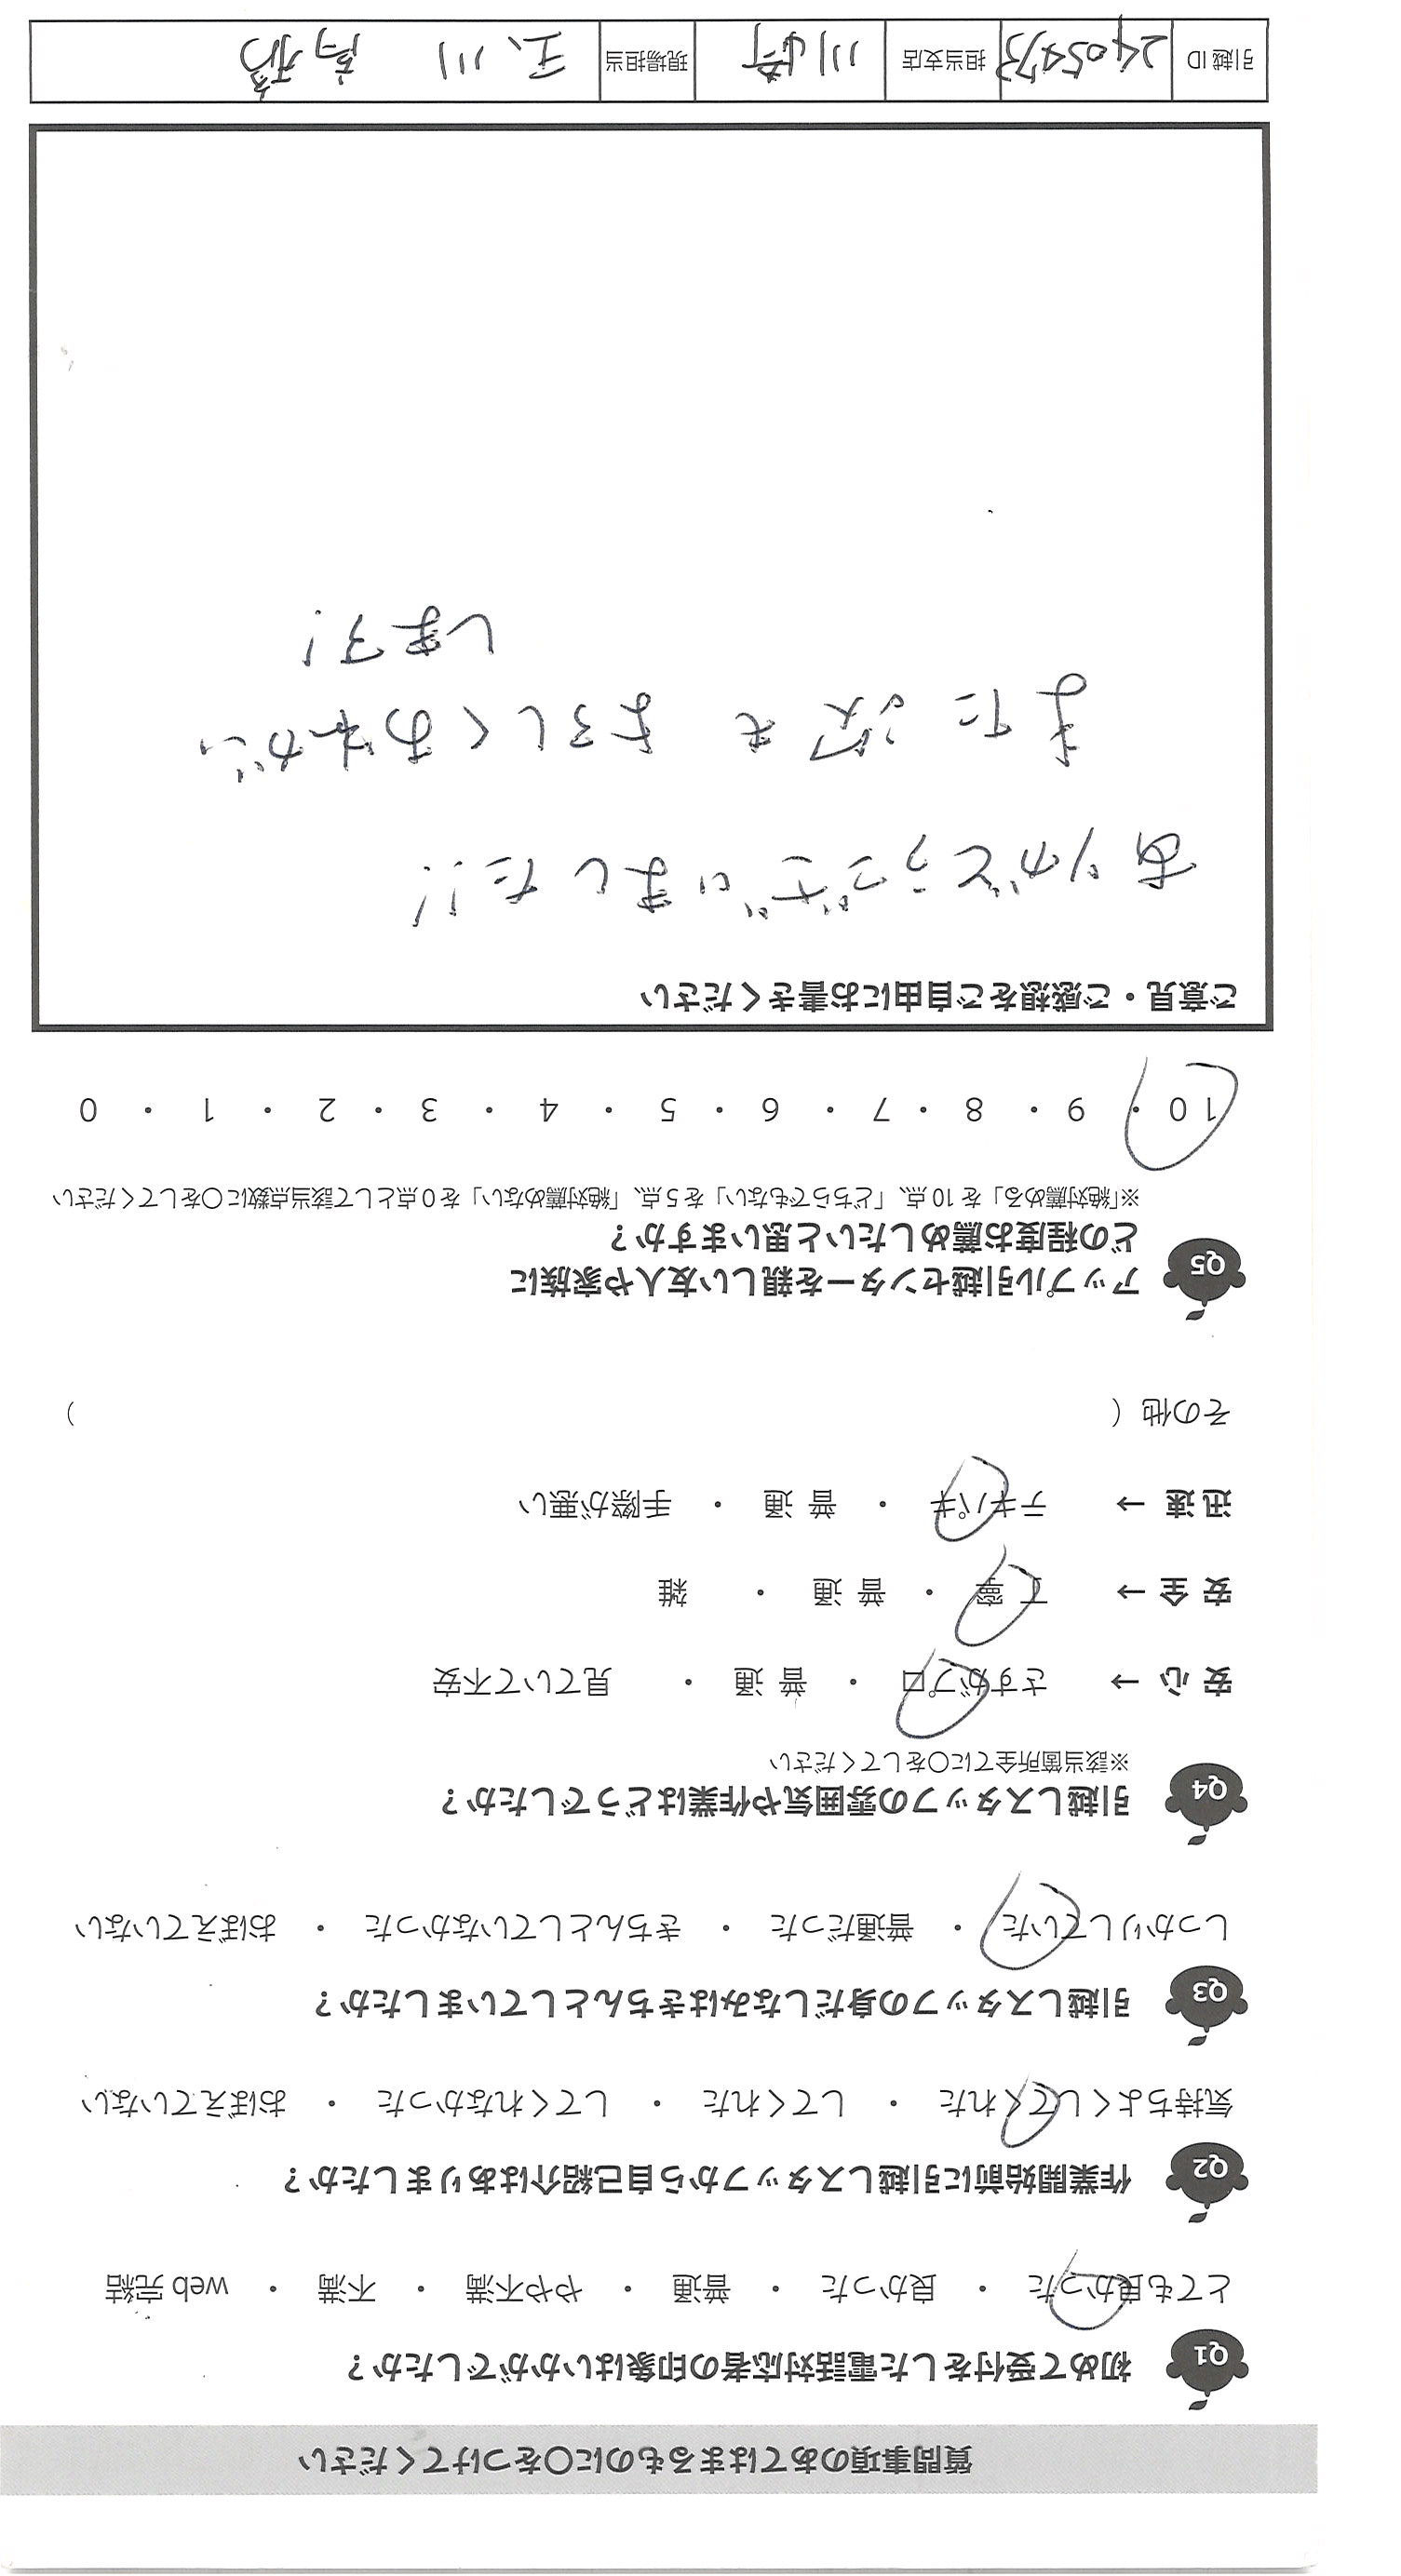 質問事項のあてはまるものに〇をつけてください
Q1 初めて受付をした電話対応者の印象はいかがでしたか？
とても良かった ・ 良かった ・ 普通 ・ やや不満 ・ 不満 ・ web 完結
Q2 作業開始前に引越しスタッフから自己紹介はありましたか？
気持ちよくしてくれた ・ してくれた ・ してくれなかった ・ おぼえていない
Q3 引越しスタッフの身だしなみはきちんとしていましたか？
しっかりしていた ・ 普通だった ・ きちんとしていなかった ・ おぼえていない
Q4 引越しスタッフの雰囲気や作業はどうでしたか？
※該当箇所全てに〇をしてください
安 心 → さすがプロ ・ 普 通 ・ 見ていて不安
安 全 → 丁 寧 ・ 普 通 ・ 雑
迅 速 → テキパキ ・ 普 通 ・ 手際が悪い
その他（ ）
Q5 アップル引越センターを親しい友人や家族に
どの程度お薦めしたいと思いますか？
※「絶対薦める」を 10 点、「どちらでもない」を 5 点、「絶対薦めない」を 0 点として該当点数に〇をしてください
10 ・ 9 ・ 8 ・ 7 ・ 6 ・ 5 ・ 4 ・ 3 ・ 2 ・ 1 ・ 0
ご意見・ご感想をご自由にお書きください
ありがとうございました!!
また次もよろしくおねがい
します!
引越 ID 2405473 担当支店 川崎 現場担当 玉川 高橋